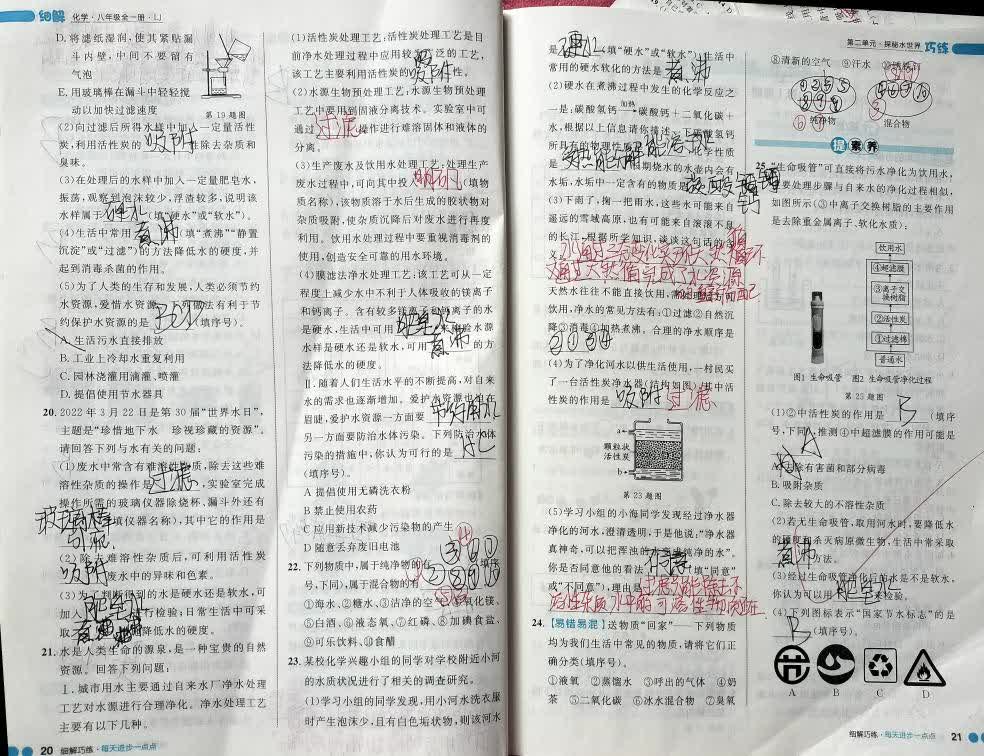 细解 化学·八年级全一册·LJ
D.将滤纸湿润,使其紧贴漏
斗内壁,中间不要留有
气泡
E.用玻璃棒在漏斗中轻轻搅
动以加快过滤速度
第19题图
(2)向过滤后所得水样中加入一定量活性
炭,利用活性炭的吸附性除去杂质和
臭味。
(3)在处理后的水样中加入一定量肥皂水,
振荡,观察到泡沫较少,浮渣较多,说明该
水样属于硬水(填“硬水”或“软水”)。
(4)生活中常用煮沸(填“煮沸”“静置
沉淀”或“过滤”)的方法降低水的硬度,并
起到消毒杀菌的作用。
(5)为了人类的生存和发展,人类必须节约
水资源,爱惜水资源。下列做法有利于节
约保护水资源的是BCD(填序号)。
A.生活污水直接排放
B.工业上冷却水重复利用
C.园林浇灌用滴灌、喷灌
D.提倡使用节水器具
20. 2022年3月22日是第30届“世界水日”,
主题是“珍惜地下水 珍视珍藏的资源”。
请回答下列与水有关的问题:
(1)废水中常含有难溶性杂质,除去这些难
溶性杂质的操作是过滤,实验室完成
操作所需的玻璃仪器除烧杯、漏斗外还有
玻璃棒(填仪器名称),其中它的作用是
引流
(2)除去难溶性杂质后,可利用活性炭
吸附废水中的异味和色素。
(3)为了判断得到的水是硬水还是软水,可
加入肥皂水进行检验;日常生活中可采
取煮沸降低水的硬度。
21. 水是人类生命的源泉,是一种宝贵的自然
资源。回答下列问题:
Ⅰ.城市用水主要通过自来水厂净水处理
工艺对水源进行合理净化。净水处理工艺
主要有以下几种。
20 细解巧练·每天进步一点点
(1)活性炭处理工艺:活性炭处理工艺是目
前净水处理过程中应用较为广泛的工艺,
该工艺主要利用活性炭的吸附性。
(2)水源生物预处理工艺:水源生物预处理
工艺中要用到固液分离技术。实验室中可
通过过滤操作进行难溶固体和液体的
分离。
(3)生产废水及饮用水处理工艺:处理生产
废水过程中,可向其中投入明矾(填物
质名称),该物质溶于水后生成的胶状物对
杂质吸附,使杂质沉降后对废水进行再度
利用。饮用水处理过程中要重视消毒器的
使用,创造安全可靠的用水环境。
(4)膜滤法净水处理工艺:该工艺可从一定
程度上减少水中不利于人体吸收的镁离子
和钙离子。含有较多镁离子和钙离子的水
是硬水,生活中可用肥皂水来检验水源
水样是硬水还是软水,可用煮沸的方
法降低水的硬度。
Ⅱ.随着人们生活水平的不断提高,对自来
水的需求也逐渐增加。爱护水资源也迫在
眉睫,爱护水资源一方面要节约用水,
另一方面要防治水体污染。下列防治水体
污染的措施中,你认为可行的是AC
(填序号)。
A 提倡使用无磷洗衣粉
B 禁止使用农药
C 应用新技术减少污染物的产生
D 随意丢弃废旧电池
22. 下列物质中,属于纯净物的有(填序
号,下同),属于混合物的有
①海水、②糖水、③洁净的空气、④氧化镁、
⑤白酒、⑥液态氧、⑦红磷、⑧加碘食盐、
⑨可乐饮料、⑩食醋
23. 某校化学兴趣小组的同学对学校附近小河
的水质状况进行了相关的调查研究。
(1)学习小组的同学发现,用小河水洗衣服
时产生泡沫少,且有白色垢状物,则该河水
第二单元·探秘水世界 巧练
是硬水(填“硬水”或“软水”)。生活中
常用的硬水软化的方法是煮沸
(2)硬水在煮沸过程中发生的化学反应之
一是:碳酸氢钙 加热 碳酸钙+二氧化碳+
水,根据以上信息请你描述一下碳酸氢钙
水垢,水垢中一定含有的物质是碳酸钙
(3)下雨了,掬一把雨水,这些水可能来自
遥远的雪域高原,也有可能来自滚滚不息
的长江,根据所学知识,谈谈这句话的含
义:
天然水往往不能直接饮用,需处理后方可
饮用,净水的常见方法有:①过滤②自然沉
降③消毒④加热煮沸。合理的净水顺序是
②①③④
(4)为了净化河水以供生活使用,一村民买
了一台活性炭净水器(结构如图),其中活
性炭的作用是吸附 过滤
a
颗粒状
活性炭
b
第23题图
(5)学习小组的小海同学发现经过净水器
净化的河水,澄清透明,于是他说:“净水器
真神奇,可以把浑浊的河水变成纯净的水”。
你是否同意他的看法不同意(填“同意”
或“不同意”),理由是
24.【易错易混】送物质“回家”——下列物质
均为我们生活中常见的物质,请将它们正
确分类(填序号)。
①液氧 ②蒸馏水 ③呼出的气体 ④奶
茶 ⑤二氧化碳 ⑥冰水混合物 ⑦臭氧
⑧清新的空气 ⑨汗水
纯净物 混合物
提素养
25.“生命吸管”可直接将污水净化为饮用水,
主要处理步骤与自来水的净化过程相似,
如图所示(③中离子交换树脂的主要作用
是去除重金属离子、软化水质):
饮用水
④超滤膜
③离子交
换树脂
②活性炭
①过滤棉
普通水
图1 生命吸管 图2 生命吸管净化过程
第25题图
(1)②中活性炭的作用是B(填序
号,下同),推测④中超滤膜的作用可能是
A
A.去除有害菌和部分病毒
B.吸附杂质
C.除去较大的不溶性杂质
(2)若无生命吸管,取用河水时,要降低水
的硬度和杀灭病原微生物,生活中常采取
煮沸方法。
(3)经过生命吸管净化后的水是不是软水,
你认为可以用肥皂水来检验。
(4)下列图标表示“国家节水标志”的是
B(填序号)。
A B C D
细解巧练·每天进步一点点 21